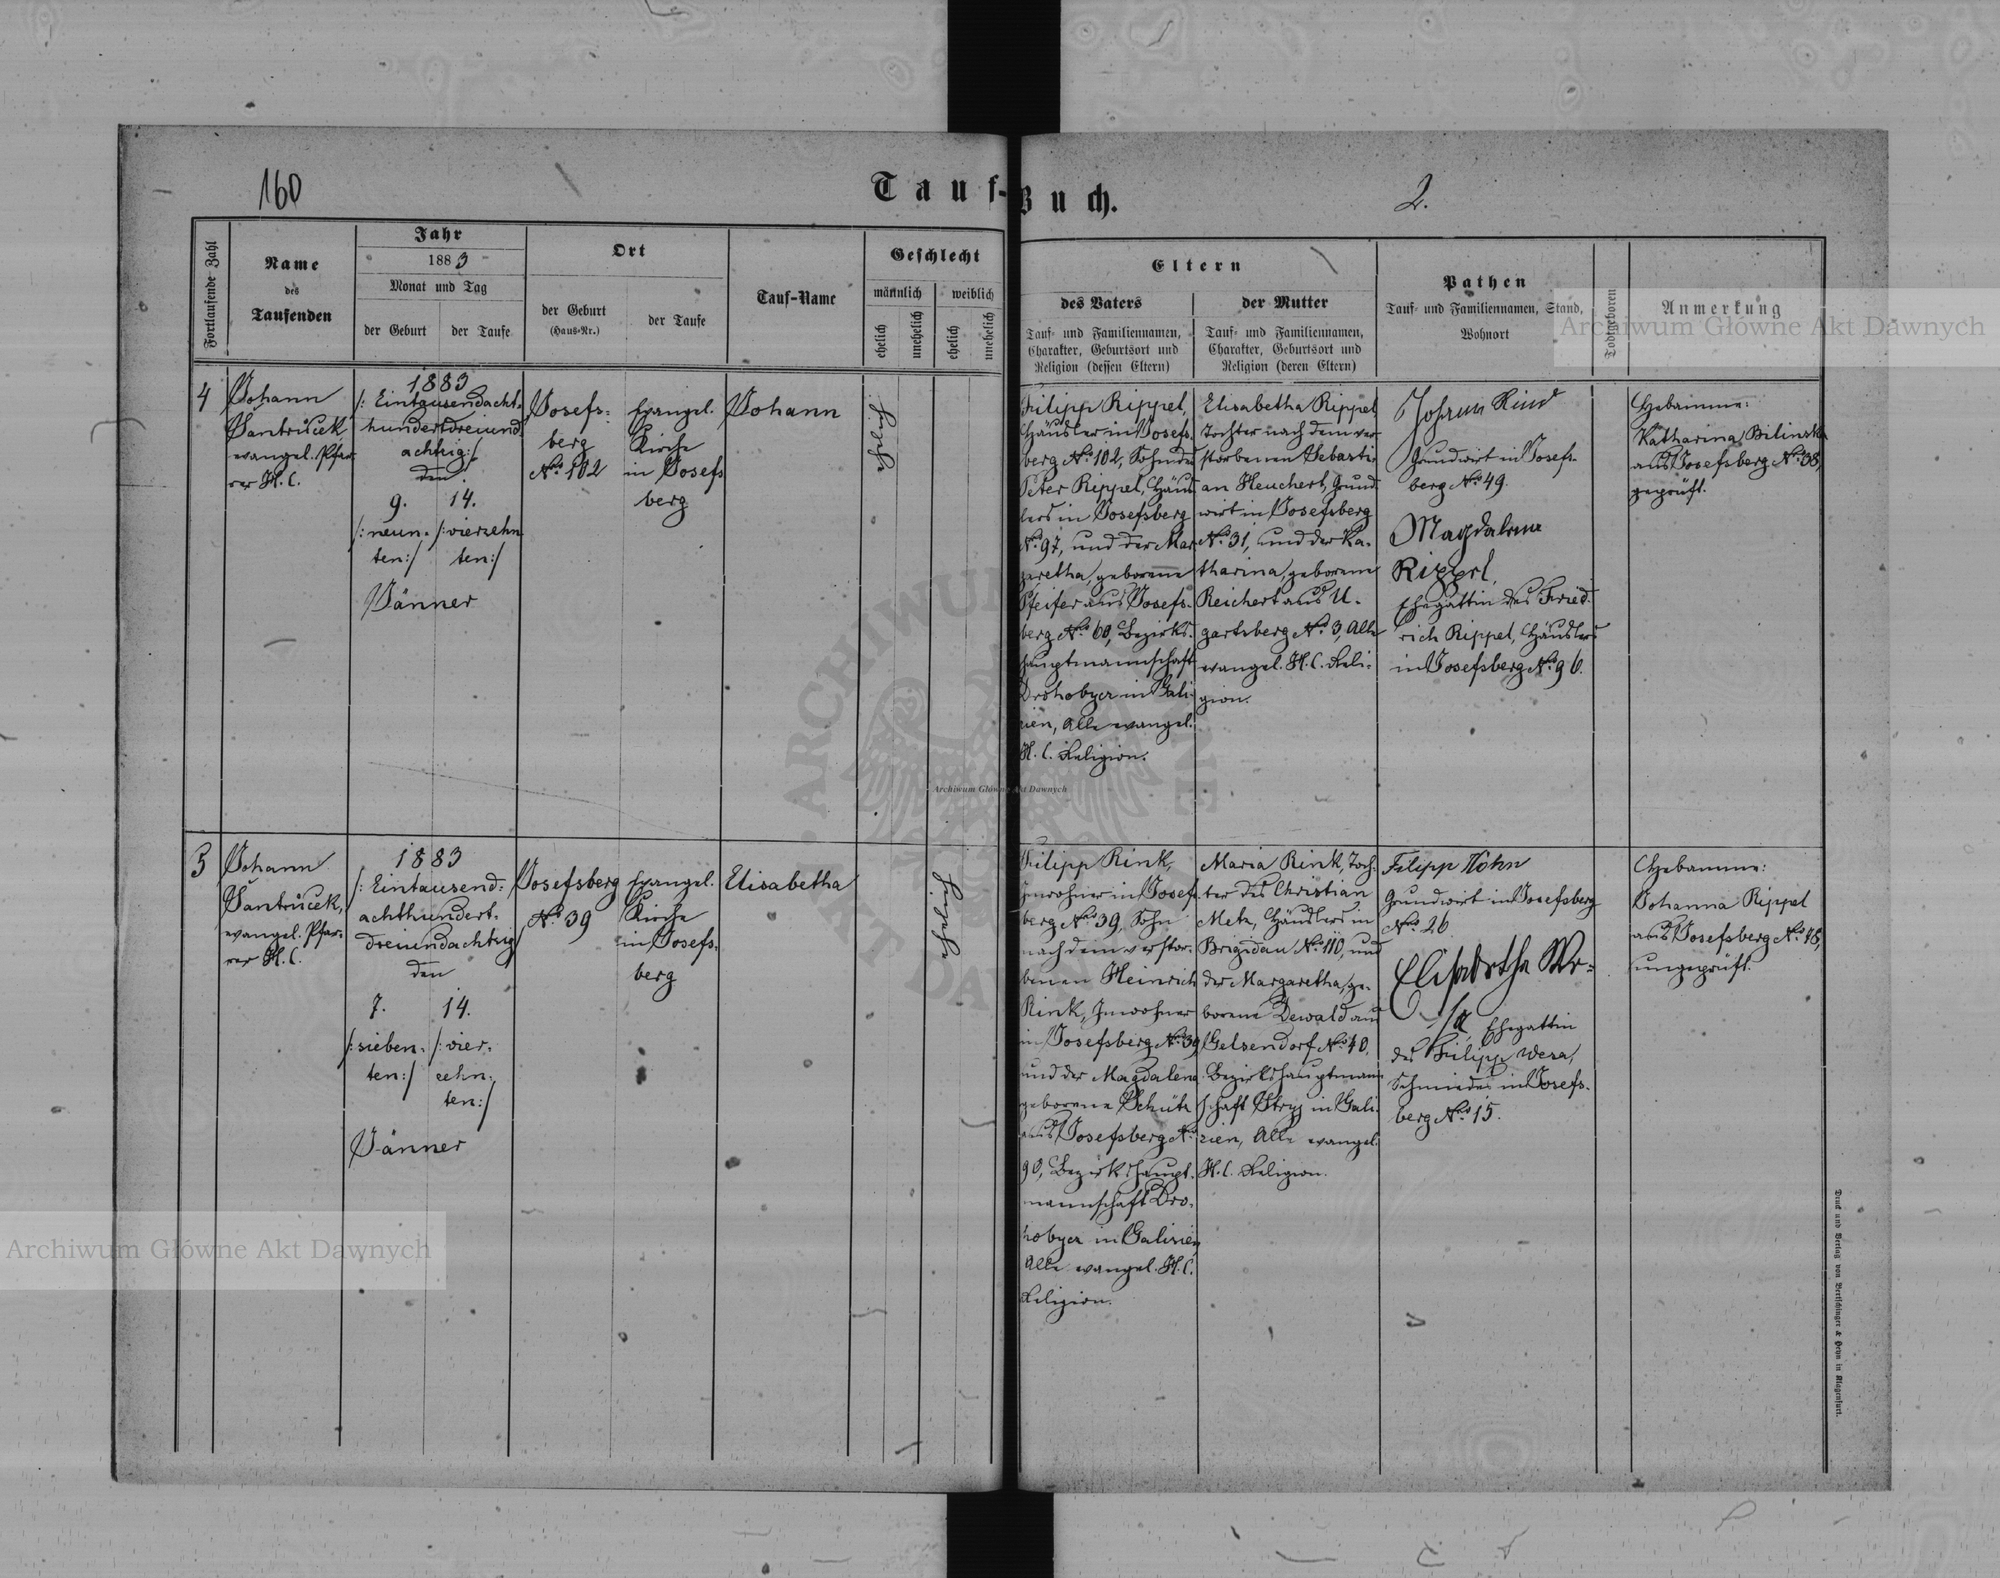 160
Tauf-Buch.
2.
Fortlaufende Zahl
Name
des
Taufenden
Jahr
1883
Monat und Tag
der Geburt
der Taufe
Ort
der Geburt
(Haus-Nr.)
der Taufe
Tauf-Name
Geschlecht
männlich
weiblich
ehelich
unehelich
ehelich
unehelich
Eltern
des Vaters
Tauf- und Familiennamen,
Charakter, Geburtsort und
Religion (dessen Eltern)
der Mutter
Tauf- und Familiennamen,
Charakter, Geburtsort und
Religion (deren Eltern)
Pathen
Tauf- und Familiennamen, Stand,
Wohnort
Todtgeboren
Anmerkung
4
Johann
Jantrucek,
evangel. Pfar-
rer H. C.
1883
/: Eintausendacht-
hundertdreiund-
achtzig :/
den
9.
/: neun-
ten :/
14.
/: vierzehn
ten :/
Jänner
Josefs-
berg
No. 102
Evangel.
Kirche
in Josefs
berg
Johann
ehelich
Filipp Rippel,
Häusler in Josefs-
berg No. 102, Sohn des
Peter Rippel, Häus
lers in Josefsberg
No. 97, und der Mar
garetha, geborene
Pfeifer aus Josefs-
berg No. 60, Bezirks-
hauptmannschaft
Drohobycz in Gali-
zien, Alle evangel.
H. C. Religion.
Elisabetha Rippel
Tochter nach dem ver
storbenen Sebasti-
an Heuchert, Grund
wirt in Josefsberg
No. 31, und der Ka-
tharina, geborene
Reichert aus U-
gartsberg No. 3, Alle
evangel. H. C. Reli-
gion.
Johann Rind
Grundwirt in Josefs-
berg No. 49.
Magdalena
Rippel,
Ehegattin des Fried-
rich Rippel, Häuslers
in Josefsberg No. 96.
Hebamme:
Katharina Bilinska
aus Josefsberg No. 38,
geprüft.
5
Johann
Jantrucek,
evangel. Pfar-
rer H. C.
1883
/: Eintausend-
achthundert-
dreiundachtzig
den
7.
/: sieben-
ten :/
14.
/: vier-
zehn-
ten :/
Jänner
Josefsberg
No. 39
Evangel.
Kirche
in Josefs-
berg
Elisabetha
ehelich
Filipp Rink,
Inwohner in Josef
berg No. 39, Sohn
nach dem verstor-
benen Heinrich
Rink, Inwohner
in Josefsberg No. 39
und der Magdalena
geborene Schütz
aus Josefsberg No.
90, Bezirkshaupt-
mannschaft Dro-
hobycz in Galizien,
Alle evangel. H. C.
Religion.
Maria Rink, Toch-
ter des Christian
Metz, Häuslers in
Brigidau No. 110, und
der Margaretha, ge-
borene Dewald aus
Gelsendorf No. 40,
Bezirkshauptmann
schaft Stryj in Gali-
zien, Alle evangel.
H. C. Religion.
Filipp Höhn
Grundwirt in Josefsberg
No. 26
Elisabetha We-
sa, Ehegattin
des Filipp Wesa,
Schmiedes in Josefs-
berg No. 15.
Hebamme:
Johanna Rippel
aus Josefsberg No. 48,
ungeprüft.
Druck und Verlag von Bertschinger & Heyn in Klagenfurt.
Archiwum Główne Akt Dawnych
Archiwum Główne Akt Dawnych
Archiwum Główne Akt Dawnych